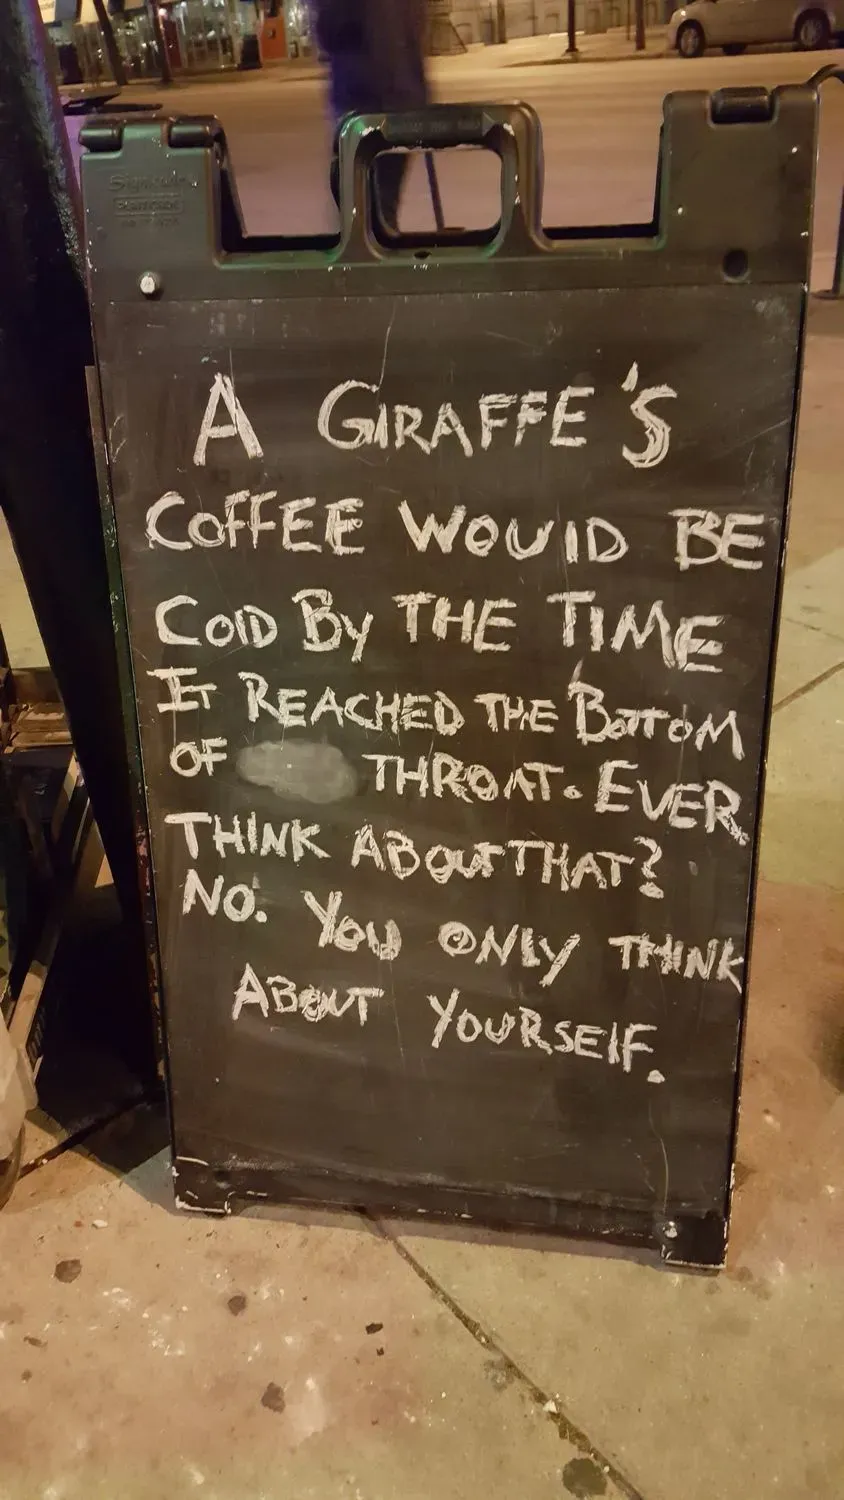 A GIRAFFE'S
COFFEE WOULD BE
COLD BY THE TIME
IT REACHED THE BOTTOM
OF THROAT. EVER
THINK ABOUT THAT?
NO. YOU ONLY THINK
ABOUT YOURSELF.